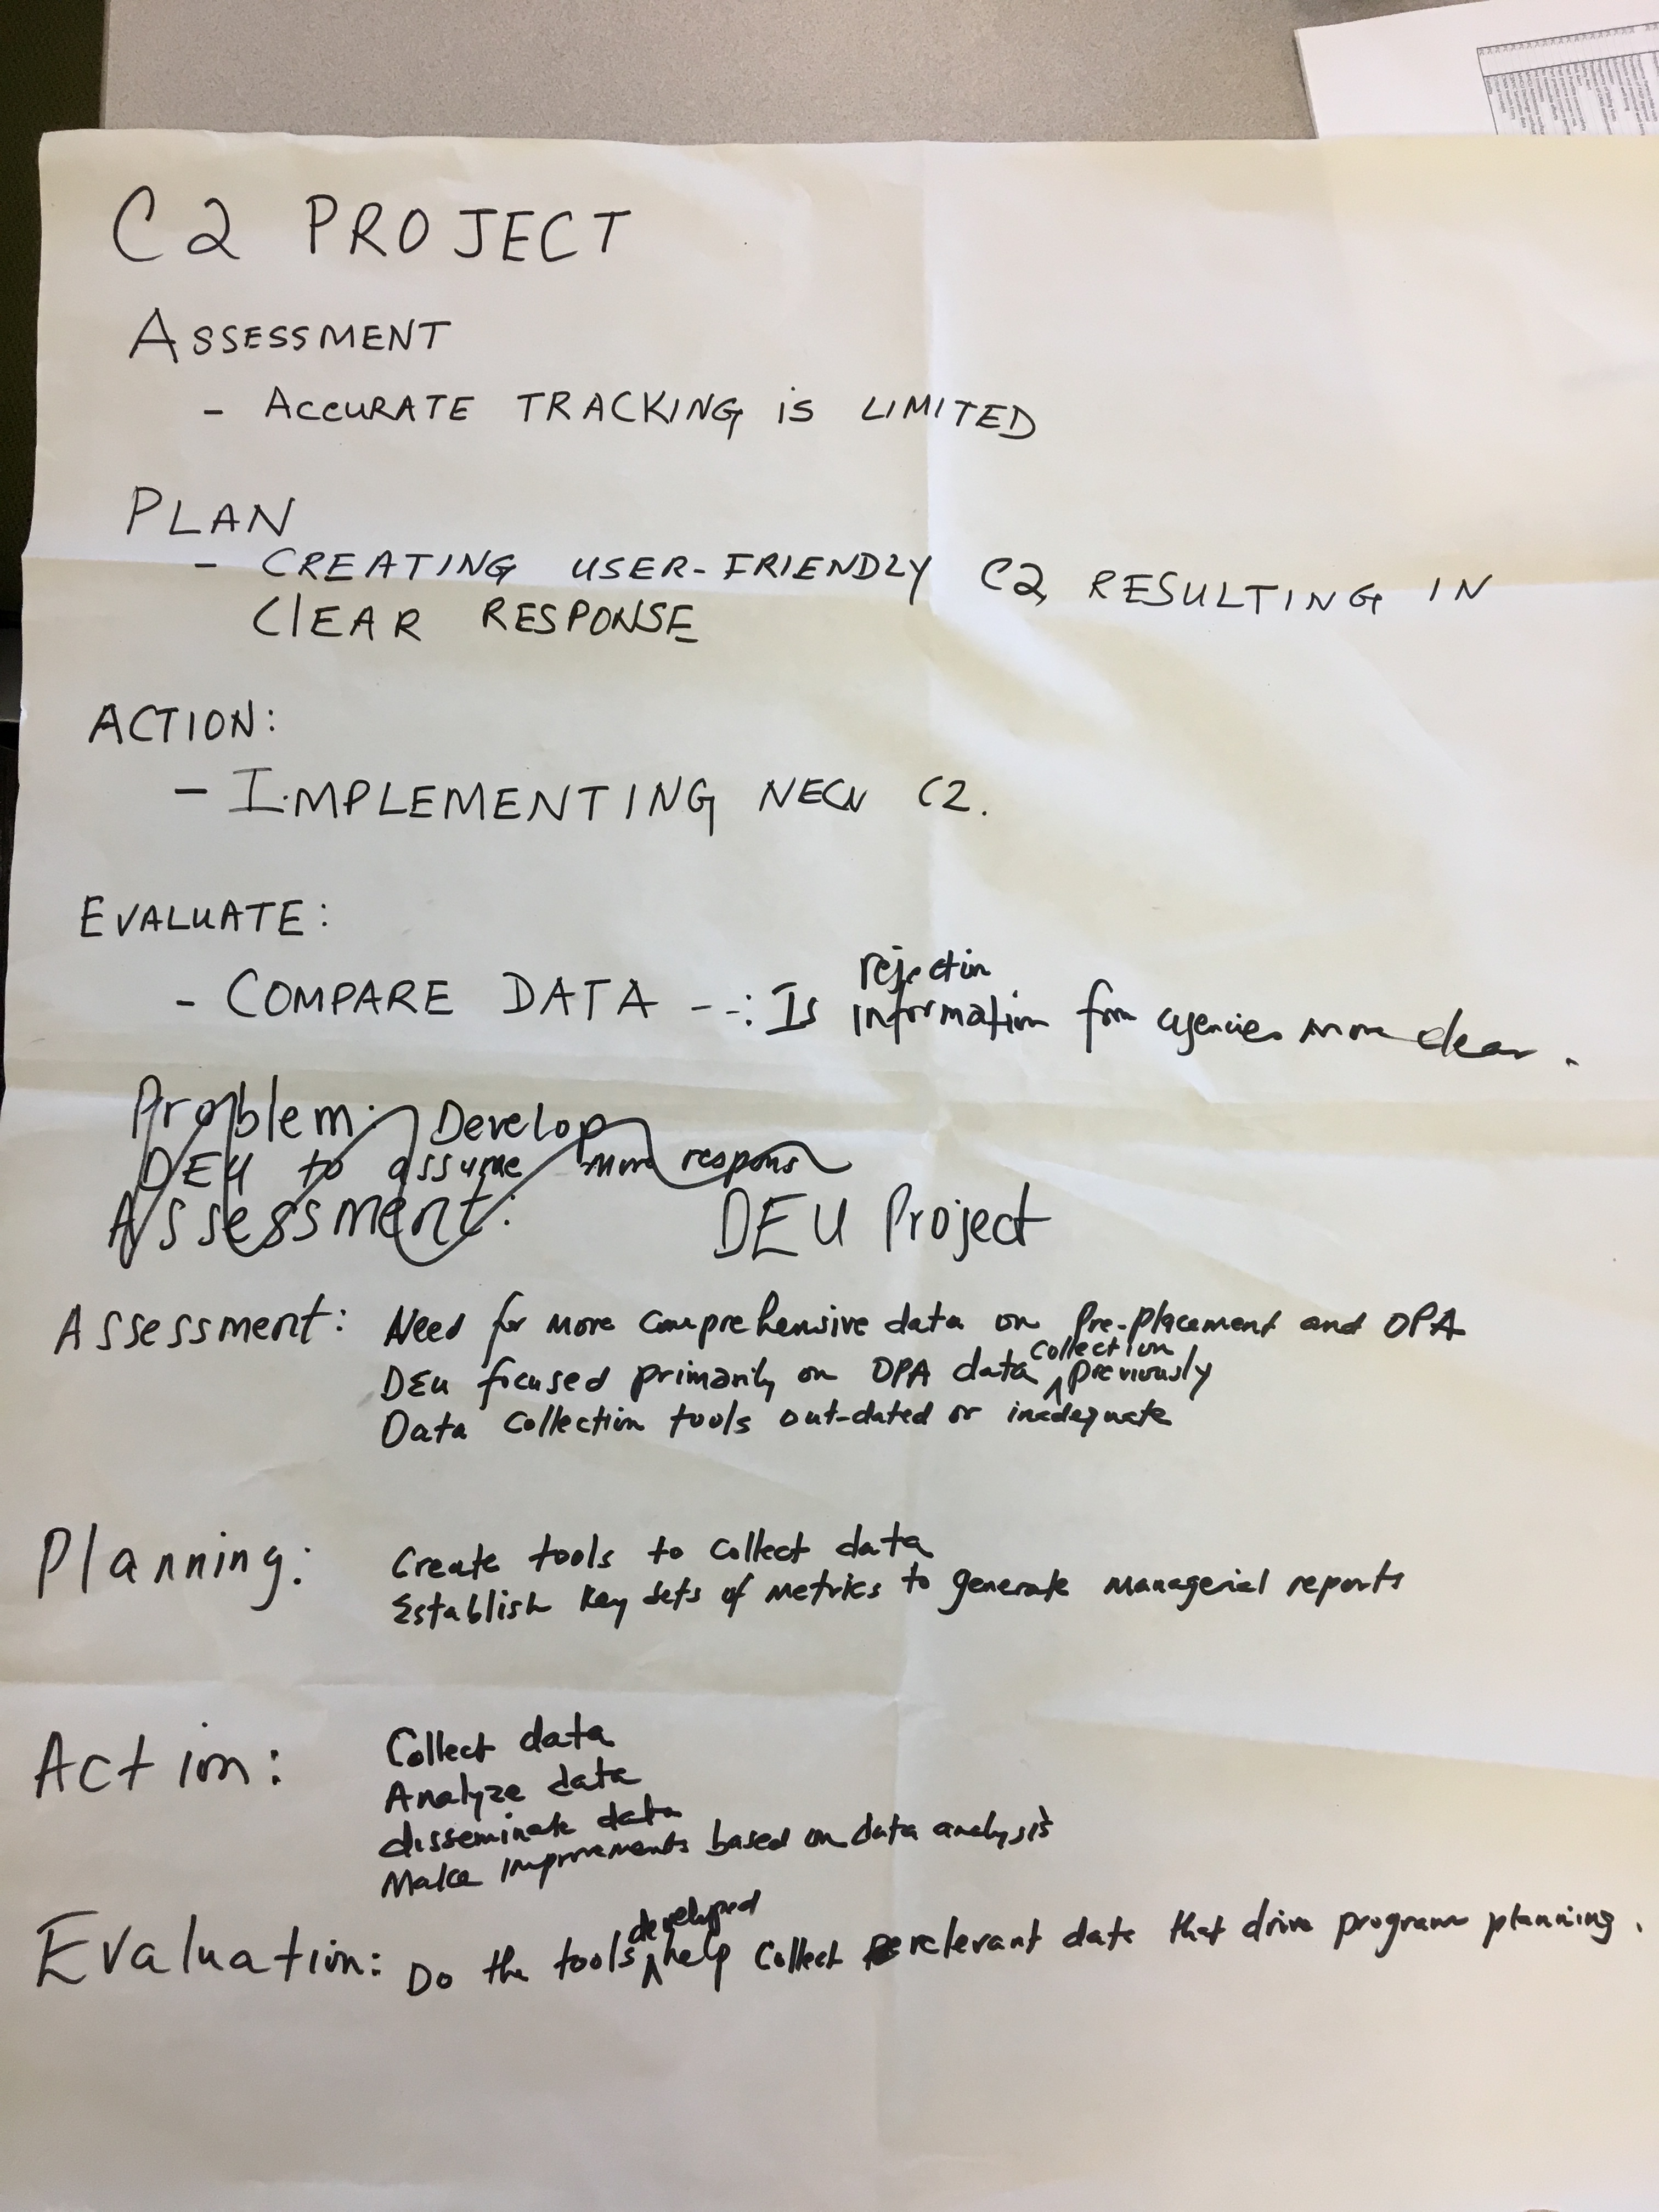 C2 PROJECT
ASSESSMENT
- ACCURATE TRACKING is LIMITED
PLAN
- CREATING USER-FRIENDLY C2 RESULTING IN
ClEAR RESPONSE
ACTION:
- IMPLEMENTING NEW C2.
EVALUATE:
rejection
- COMPARE DATA --: Is information from agencies more clear.
Problem: Develop
DEU to assume more respons
Assessment:
DEU Project
Assessment: Need for more comprehensive data on Pre-placement and OPA
DEU focused primarily on OPA data collection previously
Data collection tools out-dated or inadequate
Planning: Create tools to collect data
Establish key sets of metrics to generate managerial reports
Action: Collect data
Analyze data
disseminate data
Make improvements based on data analysis
Evaluation: Do the tools developed help collect relevant data that drive program planning.